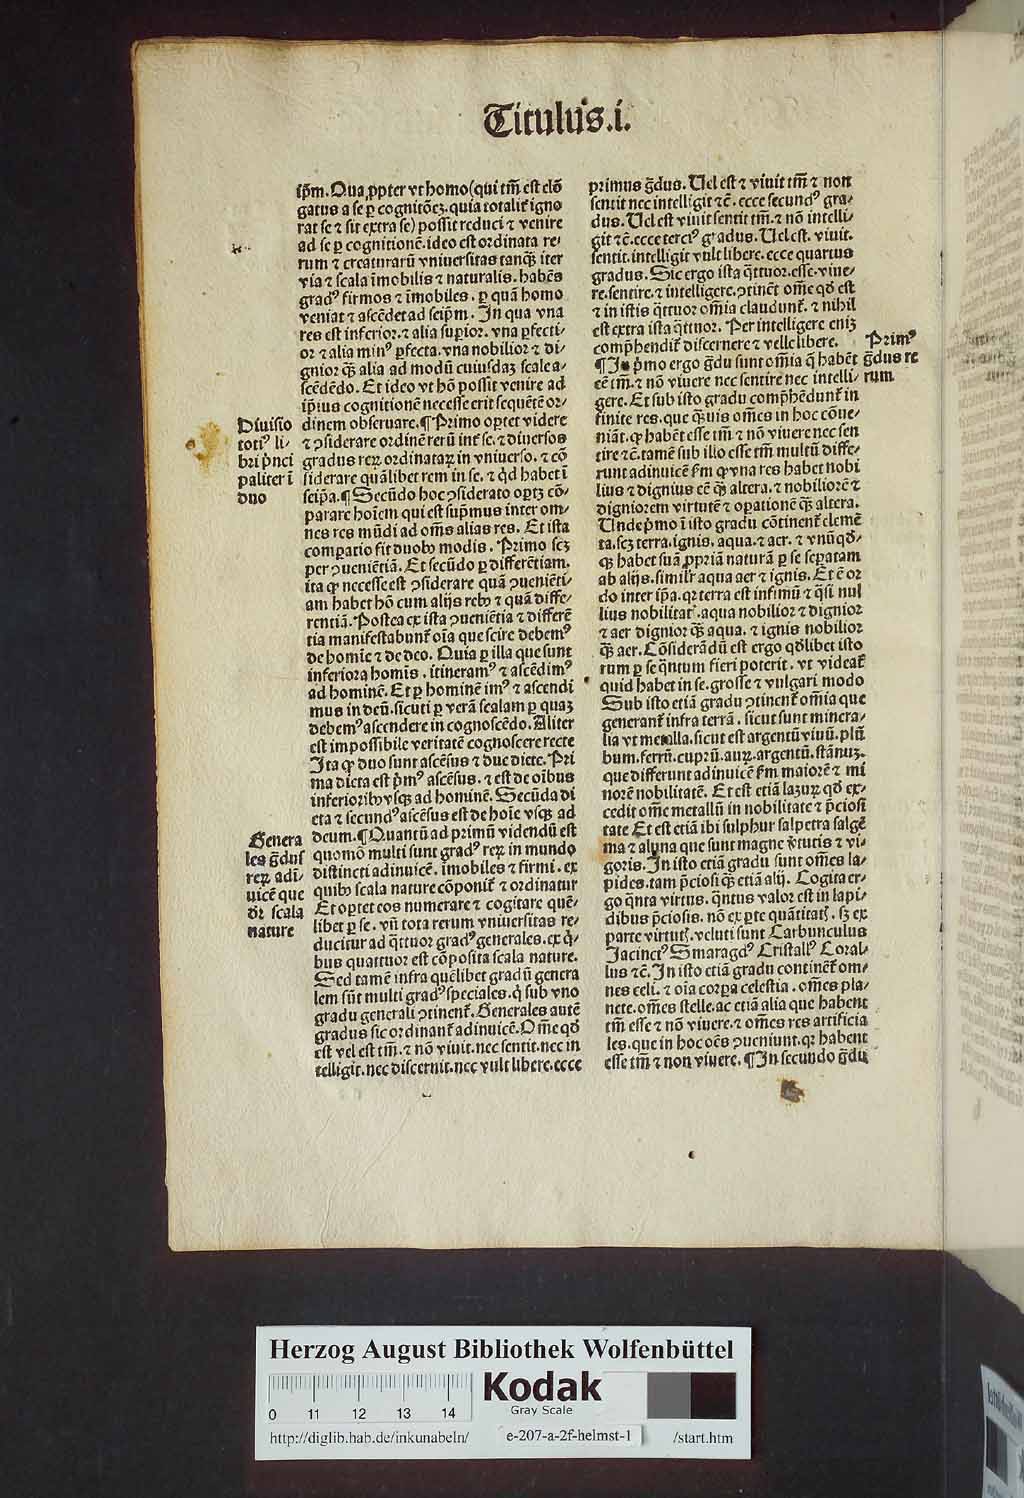 Titulus.i.
ip̄m. Qua ꝓpter vt homo (qui tm̄ est elō
gatus a se ꝑ cognitōeꝫ. quia totalit̄ igno
rat se ⁊ sit extra se) possit reduci ⁊ venire
ad se ꝑ cognitionē. ideo est ordinata re-
rum ⁊ creaturarū vniuersitas tanqȝ iter
via ⁊ scala īmobilis ⁊ naturalis. habēs
gradꝰ firmos ⁊ īmobiles. ꝑ quā homo
veniat ⁊ ascēdet ad seip̄m. In qua vna
res est inferior. ⁊ alia suꝑior. vna ꝑfecti-
or ⁊ alia minꝰ ꝑfecta. vna nobilior ⁊ di-
gnior qȝ alia ad modū cuiusdaꝫ scale a-
scēdēdo. Et ideo vt hō possit venire ad
ip̄ius cognitionē necesse erit sequētē or-
dinem obseruare. ¶ Primo oꝑtet videre
⁊ ꝯsiderare ordinē rerū int̄ se. ⁊ diuersos
gradus reꝝ ordinataꝝ in vniuerso. ⁊ cō
siderare quālibet rem in se. ⁊ qd̄ habet ī
seip̄a. ¶ Secūdo hoc ꝯsiderato oꝑtꝫ cō-
parare hoīem qui est sup̄mus inter om-
nes res mūdi ad om̄s alias res. Et ista
comꝑatio fit duobꝰ modis. Primo scꝫ
per ꝯueniētiā. Et secūdo ꝑ differētiam.
ita ꝙ necesse est ꝯsiderare quā ꝯueniēti-
am habet hō cum alijs rebꝰ ⁊ quā diffe-
rentiā. Postea ex ista ꝯueniētia ⁊ differē
tia manifestabunt̄ oīa que scire debemꝰ
de homīe ⁊ de deo. Quia ꝑ illa que sunt
inferiora homīs. itineramꝰ ⁊ ascēdimꝰ
ad hominē. Et ꝑ hominē imꝰ ⁊ ascendi
mus in deū. sicuti ꝑ verā scalam ꝑ quaꝫ
debemꝰ ascendere in cognoscēdo. Aliter
est impossibile veritatē cognoscere recte
Ita ꝙ duo sunt ascēsus ⁊ due diete. Pri
ma dieta est pr̄mꝰ ascēsus. ⁊ est de oībus
inferioribꝰ vsqȝ ad hominē. Secūda di
eta ⁊ secundꝰ ascēsus est de hoīe vsqȝ ad
deum. ¶ Quantū ad primū videndū est
quomō multi sunt gradꝰ reꝝ in mundo
distincti adinuicē. īmobiles ⁊ firmi. ex
quibꝰ scala nature cōponit̄ ⁊ ordinatur
Et oꝑtet eos numerare ⁊ cogitare quē-
libet ꝑ se. vn̄ tota rerum vniuersitas re-
ducitur ad q̄ttuor gradꝰ generales. ex q̄-
bus quattuor est cōposita scala nature.
Sed tamē infra quēlibet gradū genera
lem sūt multi gradꝰ speciales. q̄ sub vno
gradu generali ꝯtinent̄. Generales autē
gradus sic ordinant̄ adinuicē. Om̄e qd̄
est vel est tm̄. ⁊ nō viuit. nec sentit. nec in
telligit. nec discernit. nec vult libere. ecce
Diuisio
totiꝰ li-
bri p̄nci
paliter ī
duo
Genera
les ḡdus
reꝝ adī-
uicē que
dr̄ scala
nature
primus ḡdus. Uel est ⁊ viuit tm̄ ⁊ non
sentit nec intelligit ⁊c̄. ecce secundꝰ gra-
dus. Uel est viuit sentit tm̄. ⁊ nō intelli-
git ⁊c̄. ecce terciꝰ gradus. Uel est. viuit.
sentit. intelligit vult libere. ecce quartus
gradus. Sic ergo ista q̄ttuor. esse. viue-
re. sentire. ⁊ intelligere. ꝯtinēt om̄e qd̄ est
⁊ in istis q̄ttuor om̄ia claudunt̄. ⁊ nihil
est extra ista q̄ttuor. Per intelligere eniꝫ
comp̄hendit̄ discernere ⁊ velle libere.
¶ In p̄mo ergo ḡdu sunt om̄ia q̄ habēt
eē tm̄. ⁊ nō viuere nec sentire nec intelli-
gere. Et sub isto gradu comp̄hēdunt̄ in
finite res. que qȝuis om̄es in hoc cōue-
niāt. ꝙ habēt esse tm̄ ⁊ nō viuere nec sen
tire ⁊c̄. tamē sub illo esse tm̄ multū diffe-
runt adinuicē fm̄ ꝙ vna res habet nobi
lius ⁊ dignius eē qȝ altera. ⁊ nobiliorē ⁊
digniorem virtutē ⁊ oꝑationē qȝ altera.
Unde p̄mo ī isto gradu cōtinent̄ elemē
ta. scꝫ terra. ignis. aqua. ⁊ aer. ⁊ vnūqd̄-
qȝ habet suā ꝓpriā naturā ꝑ se seꝑatam
ab alijs. simil̄r aqua aer ⁊ ignis. Et ē or
do inter ip̄a. qr terra est infimū ⁊ q̄si nul
lius nobilitat̄. aqua nobilior ⁊ dignior
⁊ aer dignior qȝ aqua. ⁊ ignis nobilior
qȝ aer. Cōsiderādū est ergo qd̄libet isto
rum ꝑ se q̄ntum fieri poterit. vt videat̄
quid habet in se. grosse ⁊ vulgari modo
Sub isto etiā gradu ꝯtinent̄ om̄ia que
generant̄ infra terrā. sicut sunt minera-
lia vt metalla. sicut est argentū viuū. plū
bum. ferrū. cuprū. auꝝ. argentū. stānuꝫ.
que differunt adinuicē fm̄ maiorē ⁊ mi
norē nobilitatē. Et est etiā lazuꝝ qd̄ ex-
cedit om̄e metallū in nobilitate ⁊ p̄ciosi
tate Et est etiā ibi sulphur sal petra salgē
ma ⁊ aluna que sunt magne v̄tutis ⁊ vi-
goris. In isto etiā gradu sunt om̄es la-
pides. tam p̄ciosi qȝ etiā alij. Cogita er-
go q̄nta virtus. q̄ntus valor est in lapi-
dibus p̄ciosis. nō ex ꝑte quātitatꝭ. sꝫ ex
parte virtutꝭ. veluti sunt Carbunculus
Jacinctꝰ Smaragdꝰ Cristallꝰ Coral-
lus ⁊c̄. In isto etiā gradu continēt̄ om-
nes celi. ⁊ oīa corꝑa celestia. om̄es pla-
nete. om̄es stelle. ac etiā alia que habent
tm̄ esse ⁊ nō viuere. ⁊ om̄es res artificia
les. que in hoc oēs ꝯueniunt. qr habent
esse tm̄ ⁊ non viuere. ¶ In secundo ḡdu
Primꝰ
ḡdus re
rum
Herzog August Bibliothek Wolfenbüttel
Kodak
Gray Scale
0 11 12 13 14
http://diglib.hab.de/inkunabeln/ e-207-a-2f-helmst-1 /start.htm